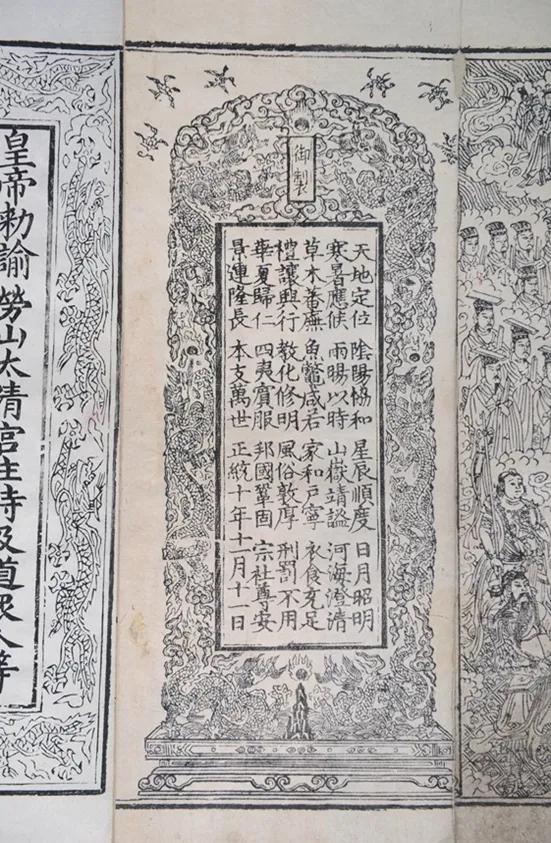 御製
天地定位 陰陽協和 星辰順度 日月昭明
寒暑應候 雨暘以時 山嶽靖謐 河海澄清
草木蕃廡 魚鱉咸若 家和戶寧 衣食充足
禮讓興行 教化修明 風俗敦厚 刑罰不用
華夏歸仁 四夷賓服 邦國鞏固 宗社尊安
景運隆長 本支萬世 正統十年十一月十一日
皇帝勅諭勞山太清宮住持及道眾人等